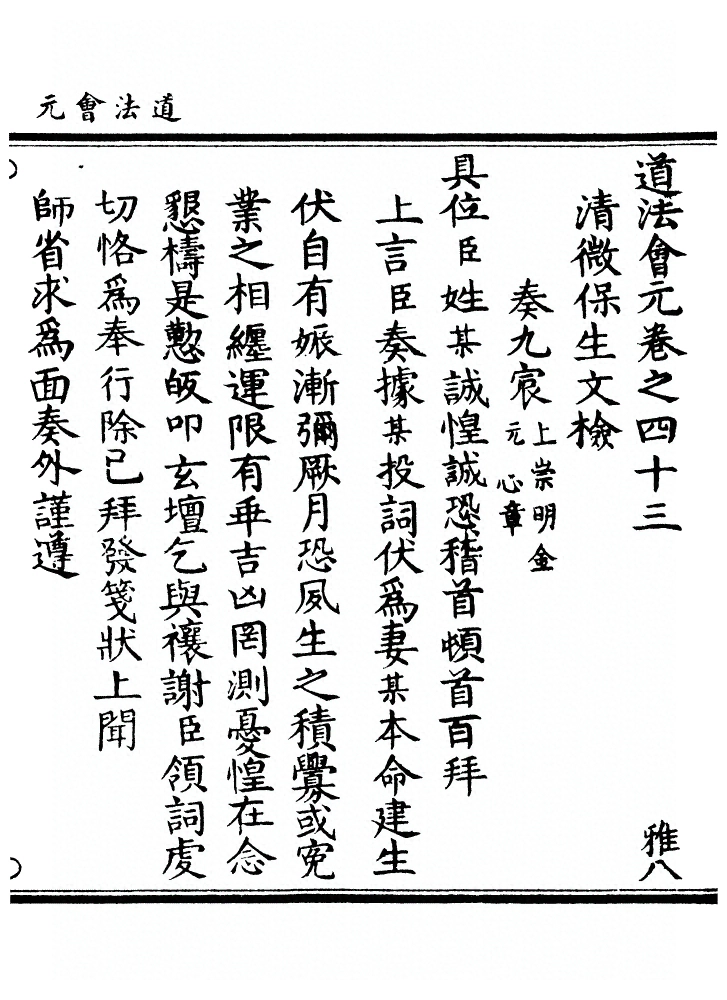 道法會元
道法會元卷之四十三　雅八
清微保生文檢
奏九宸上崇明金元心章
具位臣姓某誠惶誠恐稽首頓首百拜
上言臣奏據某投詞伏爲妻某本命建生
伏自有娠漸彌厥月恐夙生之積釁或寃
業之相纏運限有乖吉凶罔測憂惶在念
懇禱是懃皈叩玄壇乞與禳謝臣領詞虔
切恪爲奉行除已拜發箋狀上聞
師省求爲面奏外謹遵